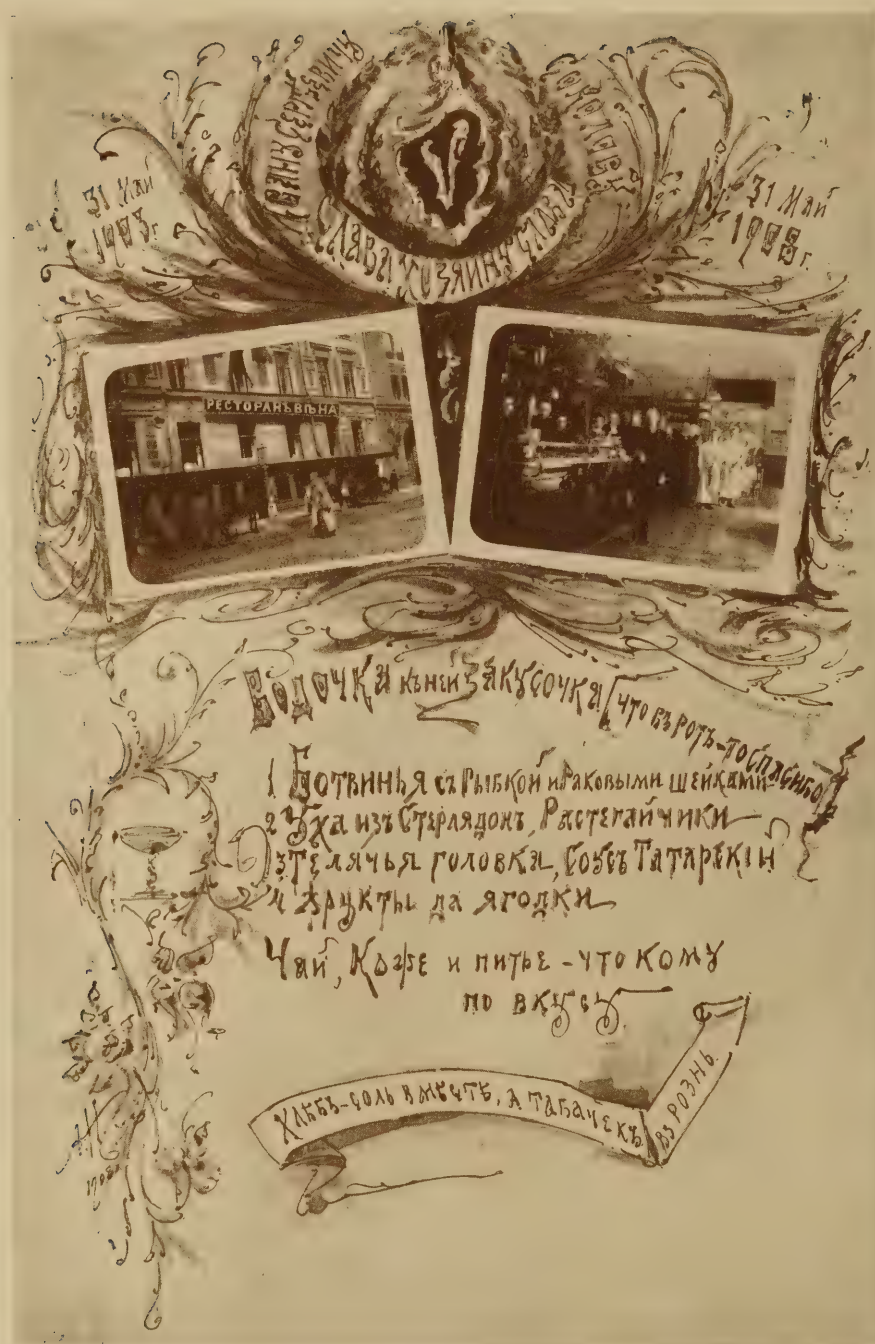 Ивану Сергѣевичу Соколову
Слава хозяину слава
31 Май
1903 г.
31 Май
1908 г.
РЕСТОРАНЪ ВѢНА
Водочка къ ней закусочка (что въ ротъ-то спасибо)
1 Ботвинья съ рыбкой и раковыми шейками
2 Уха изъ стерлядокъ, Растегайчики
3 Телячья головка, соусъ Татарскій
4 Фрукты да ягодки
Чай, Кофе и питье - что кому
по вкусу.
Хлѣбъ-соль вмѣстѣ, а табачекъ
въ рознь.